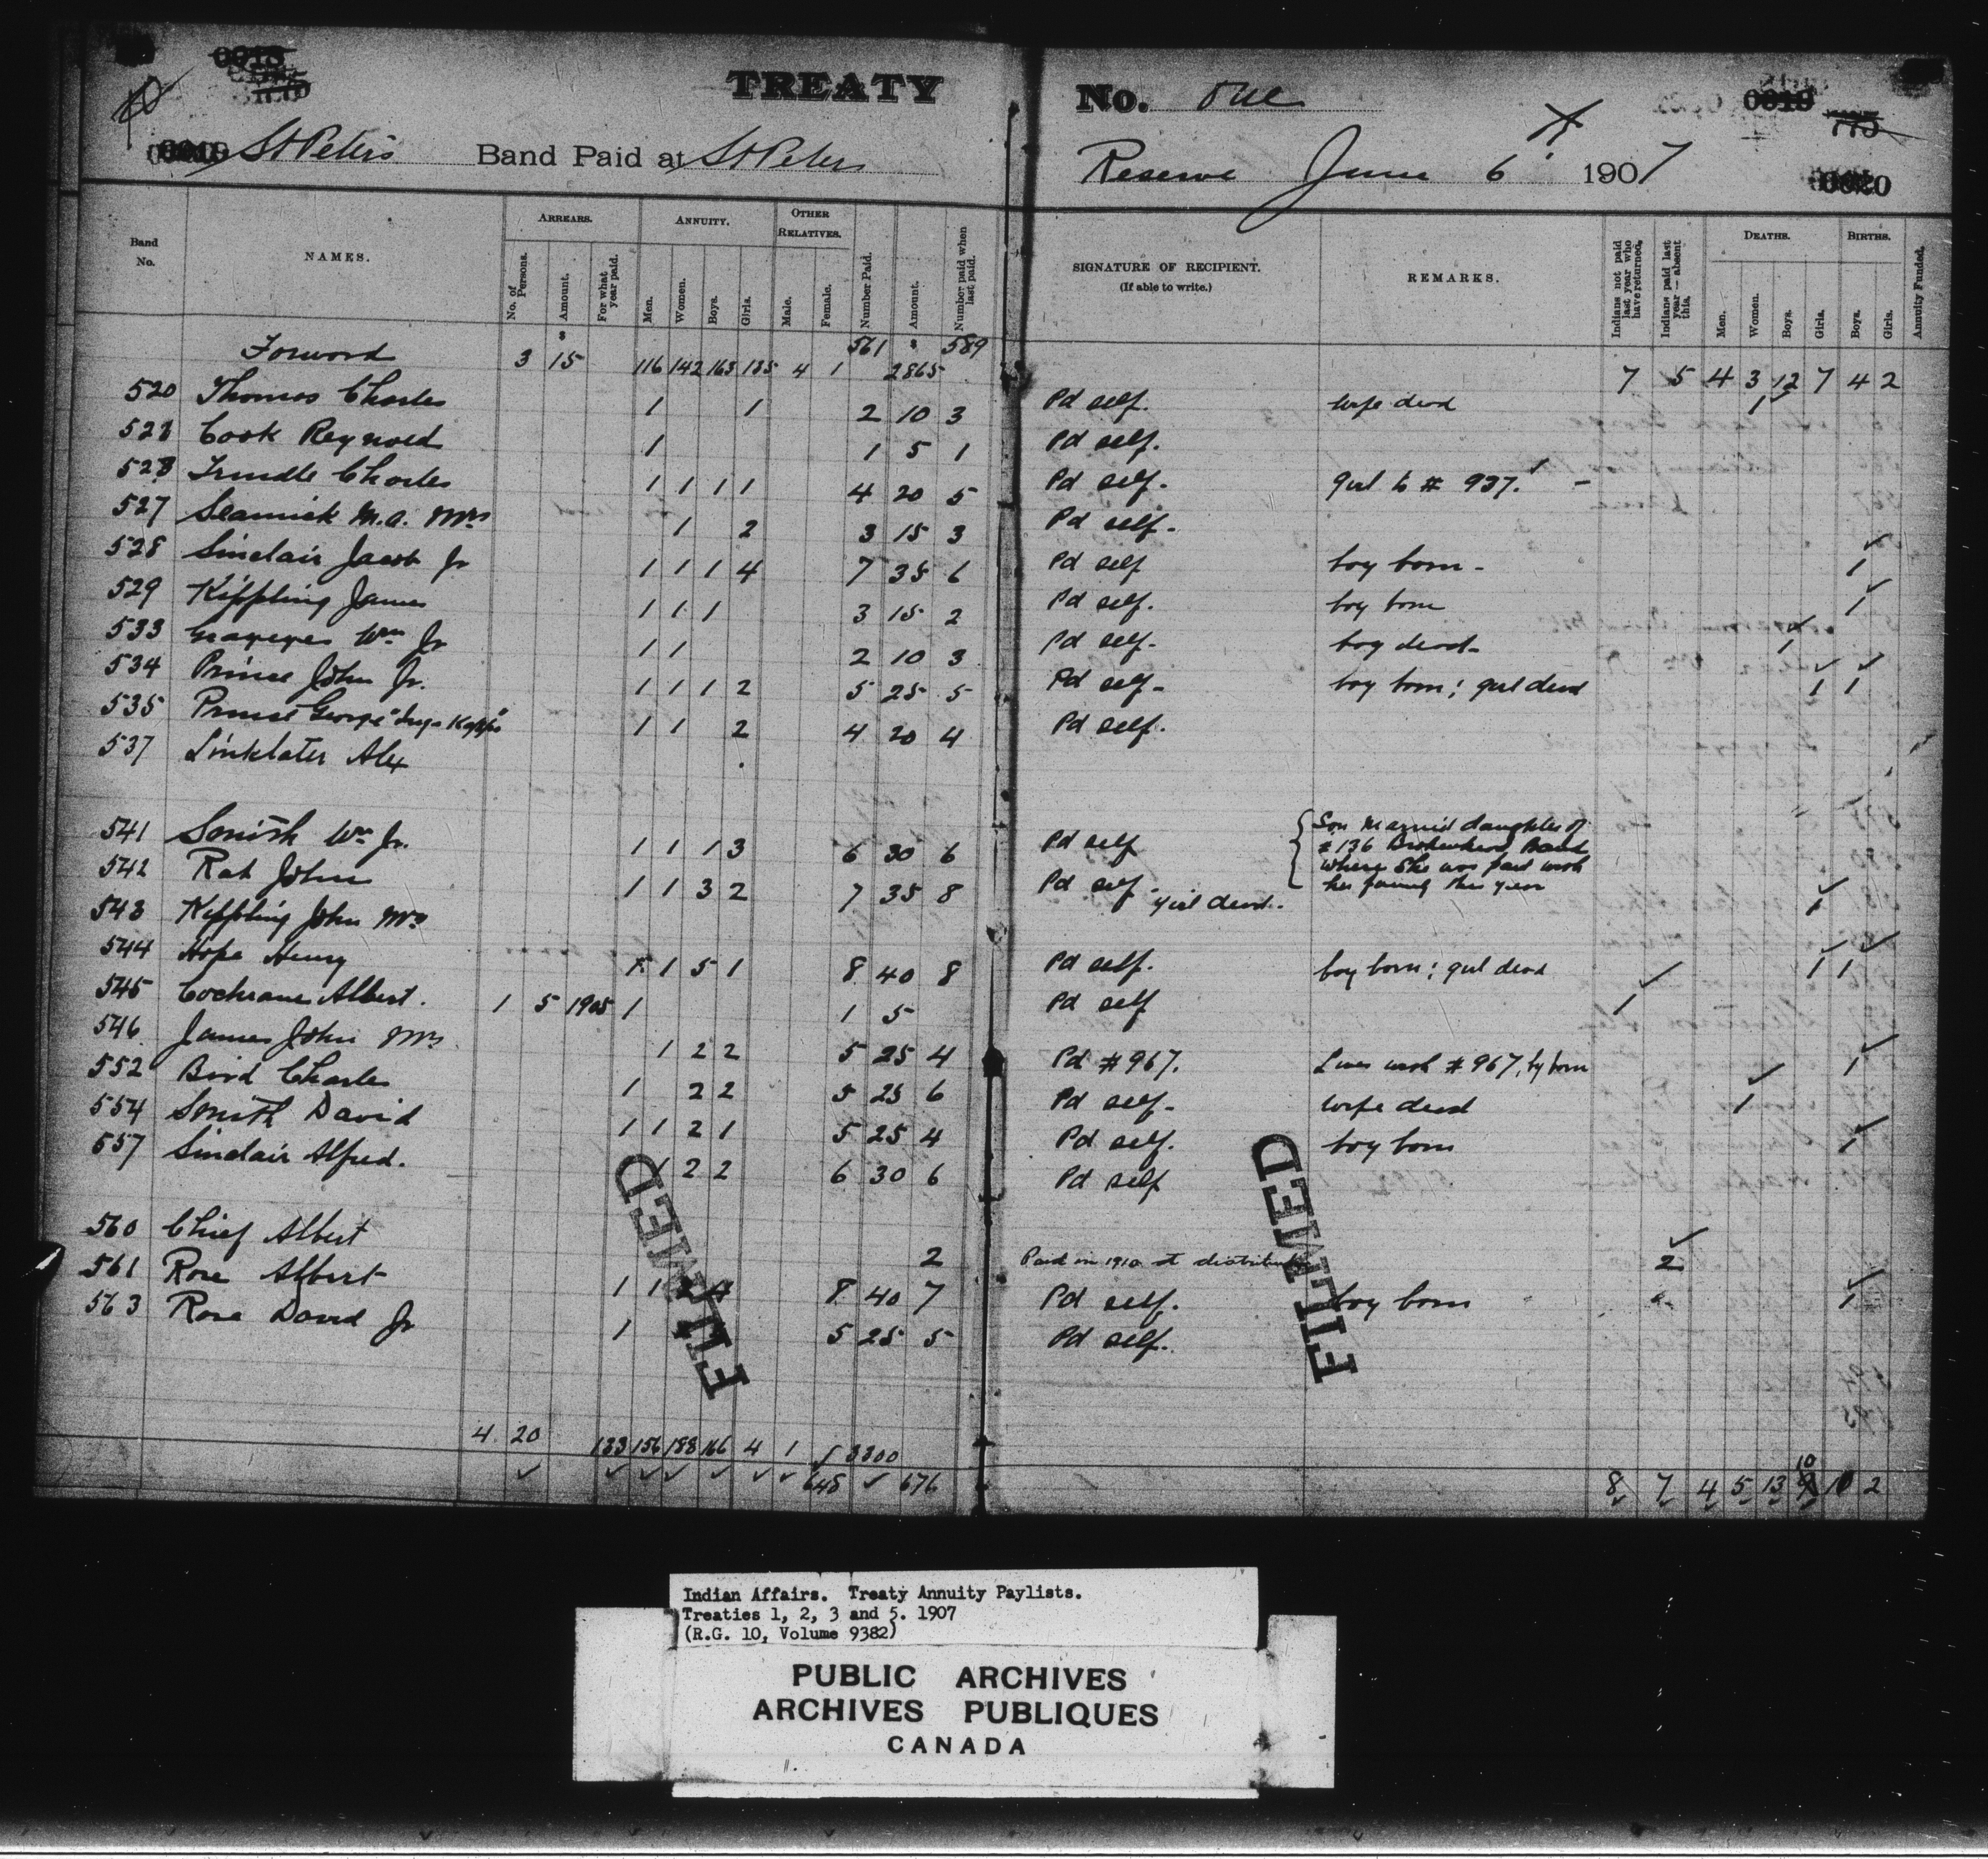 TREATY No. One
St Peters Band Paid at St Peters Reserve June 6 1907
0019 775
0020
Band No. NAMES. ARREARS. No. of Persons. Amount. For what year paid. ANNUITY. Men. Women. Boys. Girls. OTHER RELATIVES. Male. Female. Number Paid. Amount. Number paid when last paid. SIGNATURE OF RECIPIENT. (If able to write.) REMARKS. Indians not paid last year who have returned. Indians paid last year—absent this. DEATHS. Men. Women. Boys. Girls. BIRTHS. Boys. Girls. Annuity Funded.
Forword 3 15 116 142 163 135 4 1 561 2865 589 7 5 4 3 12 7 4 2
520 Thomas Charles 1 1 2 10 3 Pd self. wife dead 1
Cook Reynold 1 1 5 1 Pd self.
523 Trindle Charles 1 1 1 1 4 20 5 Pd self. girl to # 937.
527 M.A. Mrs 1 2 3 15 3 Pd self.
528 Sinclair Jacob Jr 1 1 1 4 7 35 6 Pd self boy born - 1
529 Kippling James 1 1 1 3 15 2 Pd self. boy born 1
533 Wm Jr 1 1 2 10 3 Pd self. boy dead - 1
534 Prince John Jr. 1 1 1 2 5 25 5 Pd self - boy born; girl dead 1 1
535 Prince George 1 1 2 4 20 4 Pd self.
537 Linklater Alex
541 Smith Wm Jr. 1 1 1 3 6 30 6 Pd self Son married daughter of # 136 Brokenhead Band where she was paid with her family this year
542 Rat John 1 1 3 2 7 35 8 Pd self - girl dead. 1
543 Kippling John Mrs
544 Hope Henry 1 1 5 1 8 40 8 Pd self. boy born; girl dead 1 1
545 Cochrane Albert. 1 5 1905 1 1 5 Pd self 1
546 James John Mrs. 1 2 2 5 25 4 Pd # 967. Lives with # 967, by born 1
552 Bird Charles 1 2 2 5 25 6 Pd self. wife dead 1
554 Smith David 1 1 2 1 5 25 4 Pd self. boy born 1
557 Sinclair Alfred. 1 2 2 6 30 6 Pd self
560 Chief Albert 2 Paid in 1910 at distribution 2
561 Rose Albert 1 1 2 4 8 40 7 Pd self. boy born 1
563 Rose David Jr 1 5 25 5 Pd self.
FILMED FILMED
4 20 133 156 188 166 4 1 3300 8 7 4 5 13 10 10 2
648 676
Indian Affairs. Treaty Annuity Paylists.
Treaties 1, 2, 3 and 5. 1907
(R.G. 10, Volume 9382)
PUBLIC ARCHIVES
ARCHIVES PUBLIQUES
CANADA